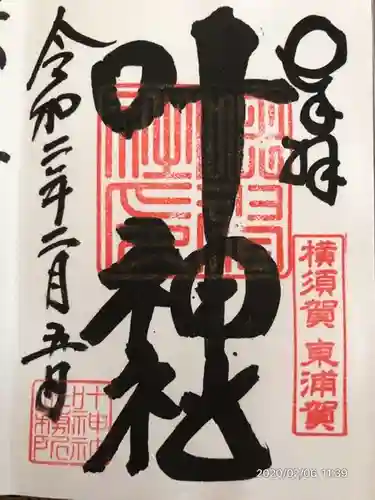 奉拝
横須賀 東浦賀
叶神社
令和二年二月五日
叶神社
2020/02/06 11:39